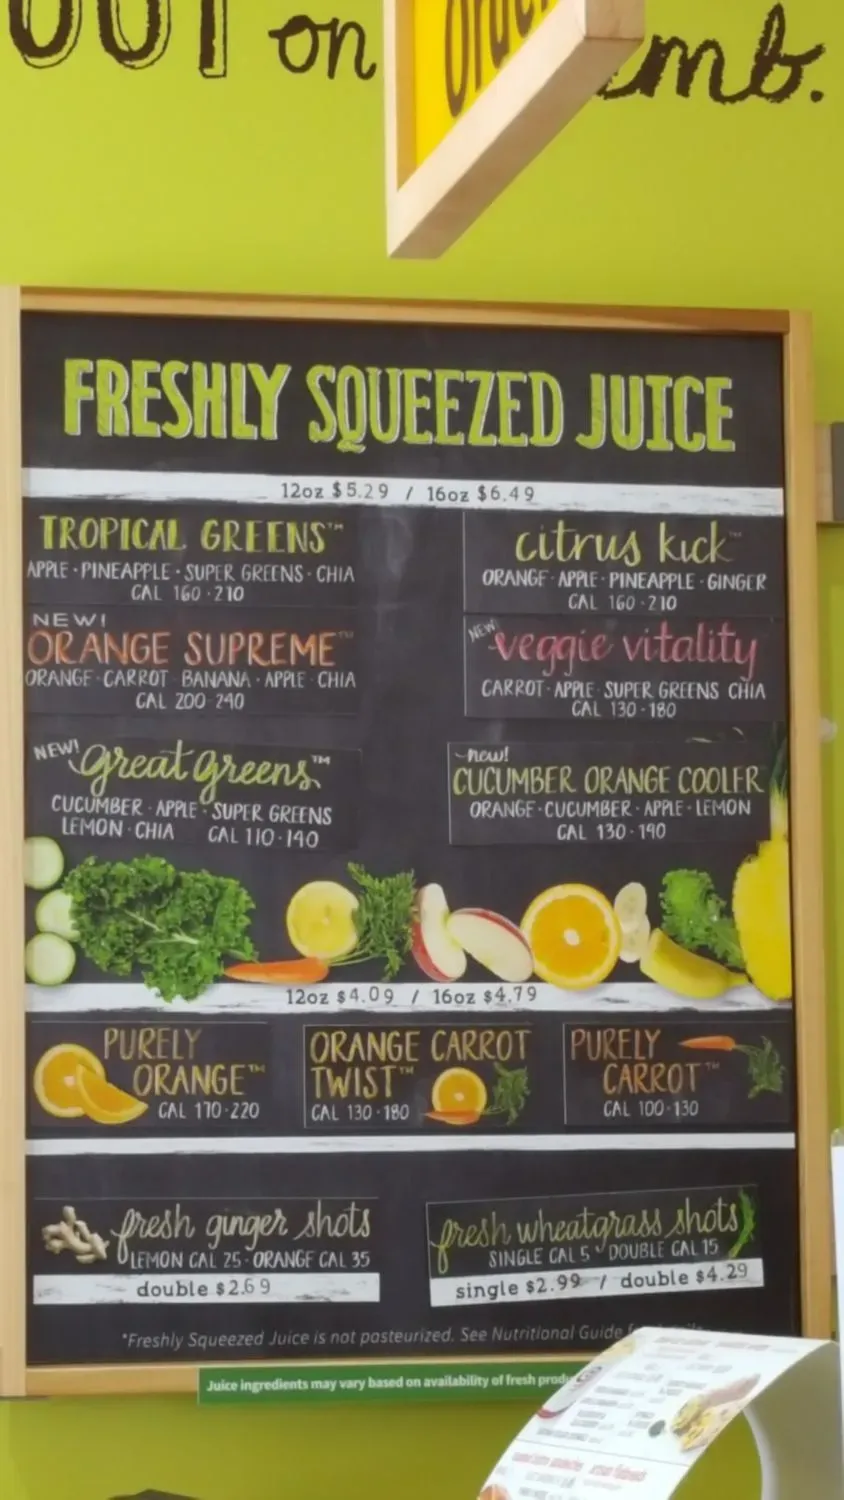 OUT on
Order
mb.
FRESHLY SQUEEZED JUICE
12oz $5.29 / 16oz $6.49
TROPICAL GREENS™
APPLE · PINEAPPLE · SUPER GREENS · CHIA
CAL 160 · 210
NEW!
ORANGE SUPREME™
ORANGE · CARROT BANANA · APPLE · CHIA
CAL 200 · 240
NEW!
great greens™
CUCUMBER · APPLE · SUPER GREENS
LEMON · CHIA CAL 110 · 140
citrus kick™
ORANGE · APPLE · PINEAPPLE · GINGER
CAL 160 · 210
NEW
veggie vitality
CARROT · APPLE · SUPER GREENS CHIA
CAL 130 · 180
new!
CUCUMBER ORANGE COOLER
ORANGE · CUCUMBER · APPLE · LEMON
CAL 130 · 190
12oz $4.09 / 16oz $4.79
PURELY
ORANGE™
CAL 170 · 220
ORANGE CARROT
TWIST™
CAL 130 · 180
PURELY
CARROT™
CAL 100 · 130
fresh ginger shots
LEMON CAL 25 · ORANGE CAL 35
double $2.69
fresh wheatgrass shots
SINGLE CAL 5 · DOUBLE CAL 15
single $2.99 / double $4.29
*Freshly Squeezed Juice is not pasteurized. See Nutritional Guide
Juice ingredients may vary based on availability of fresh